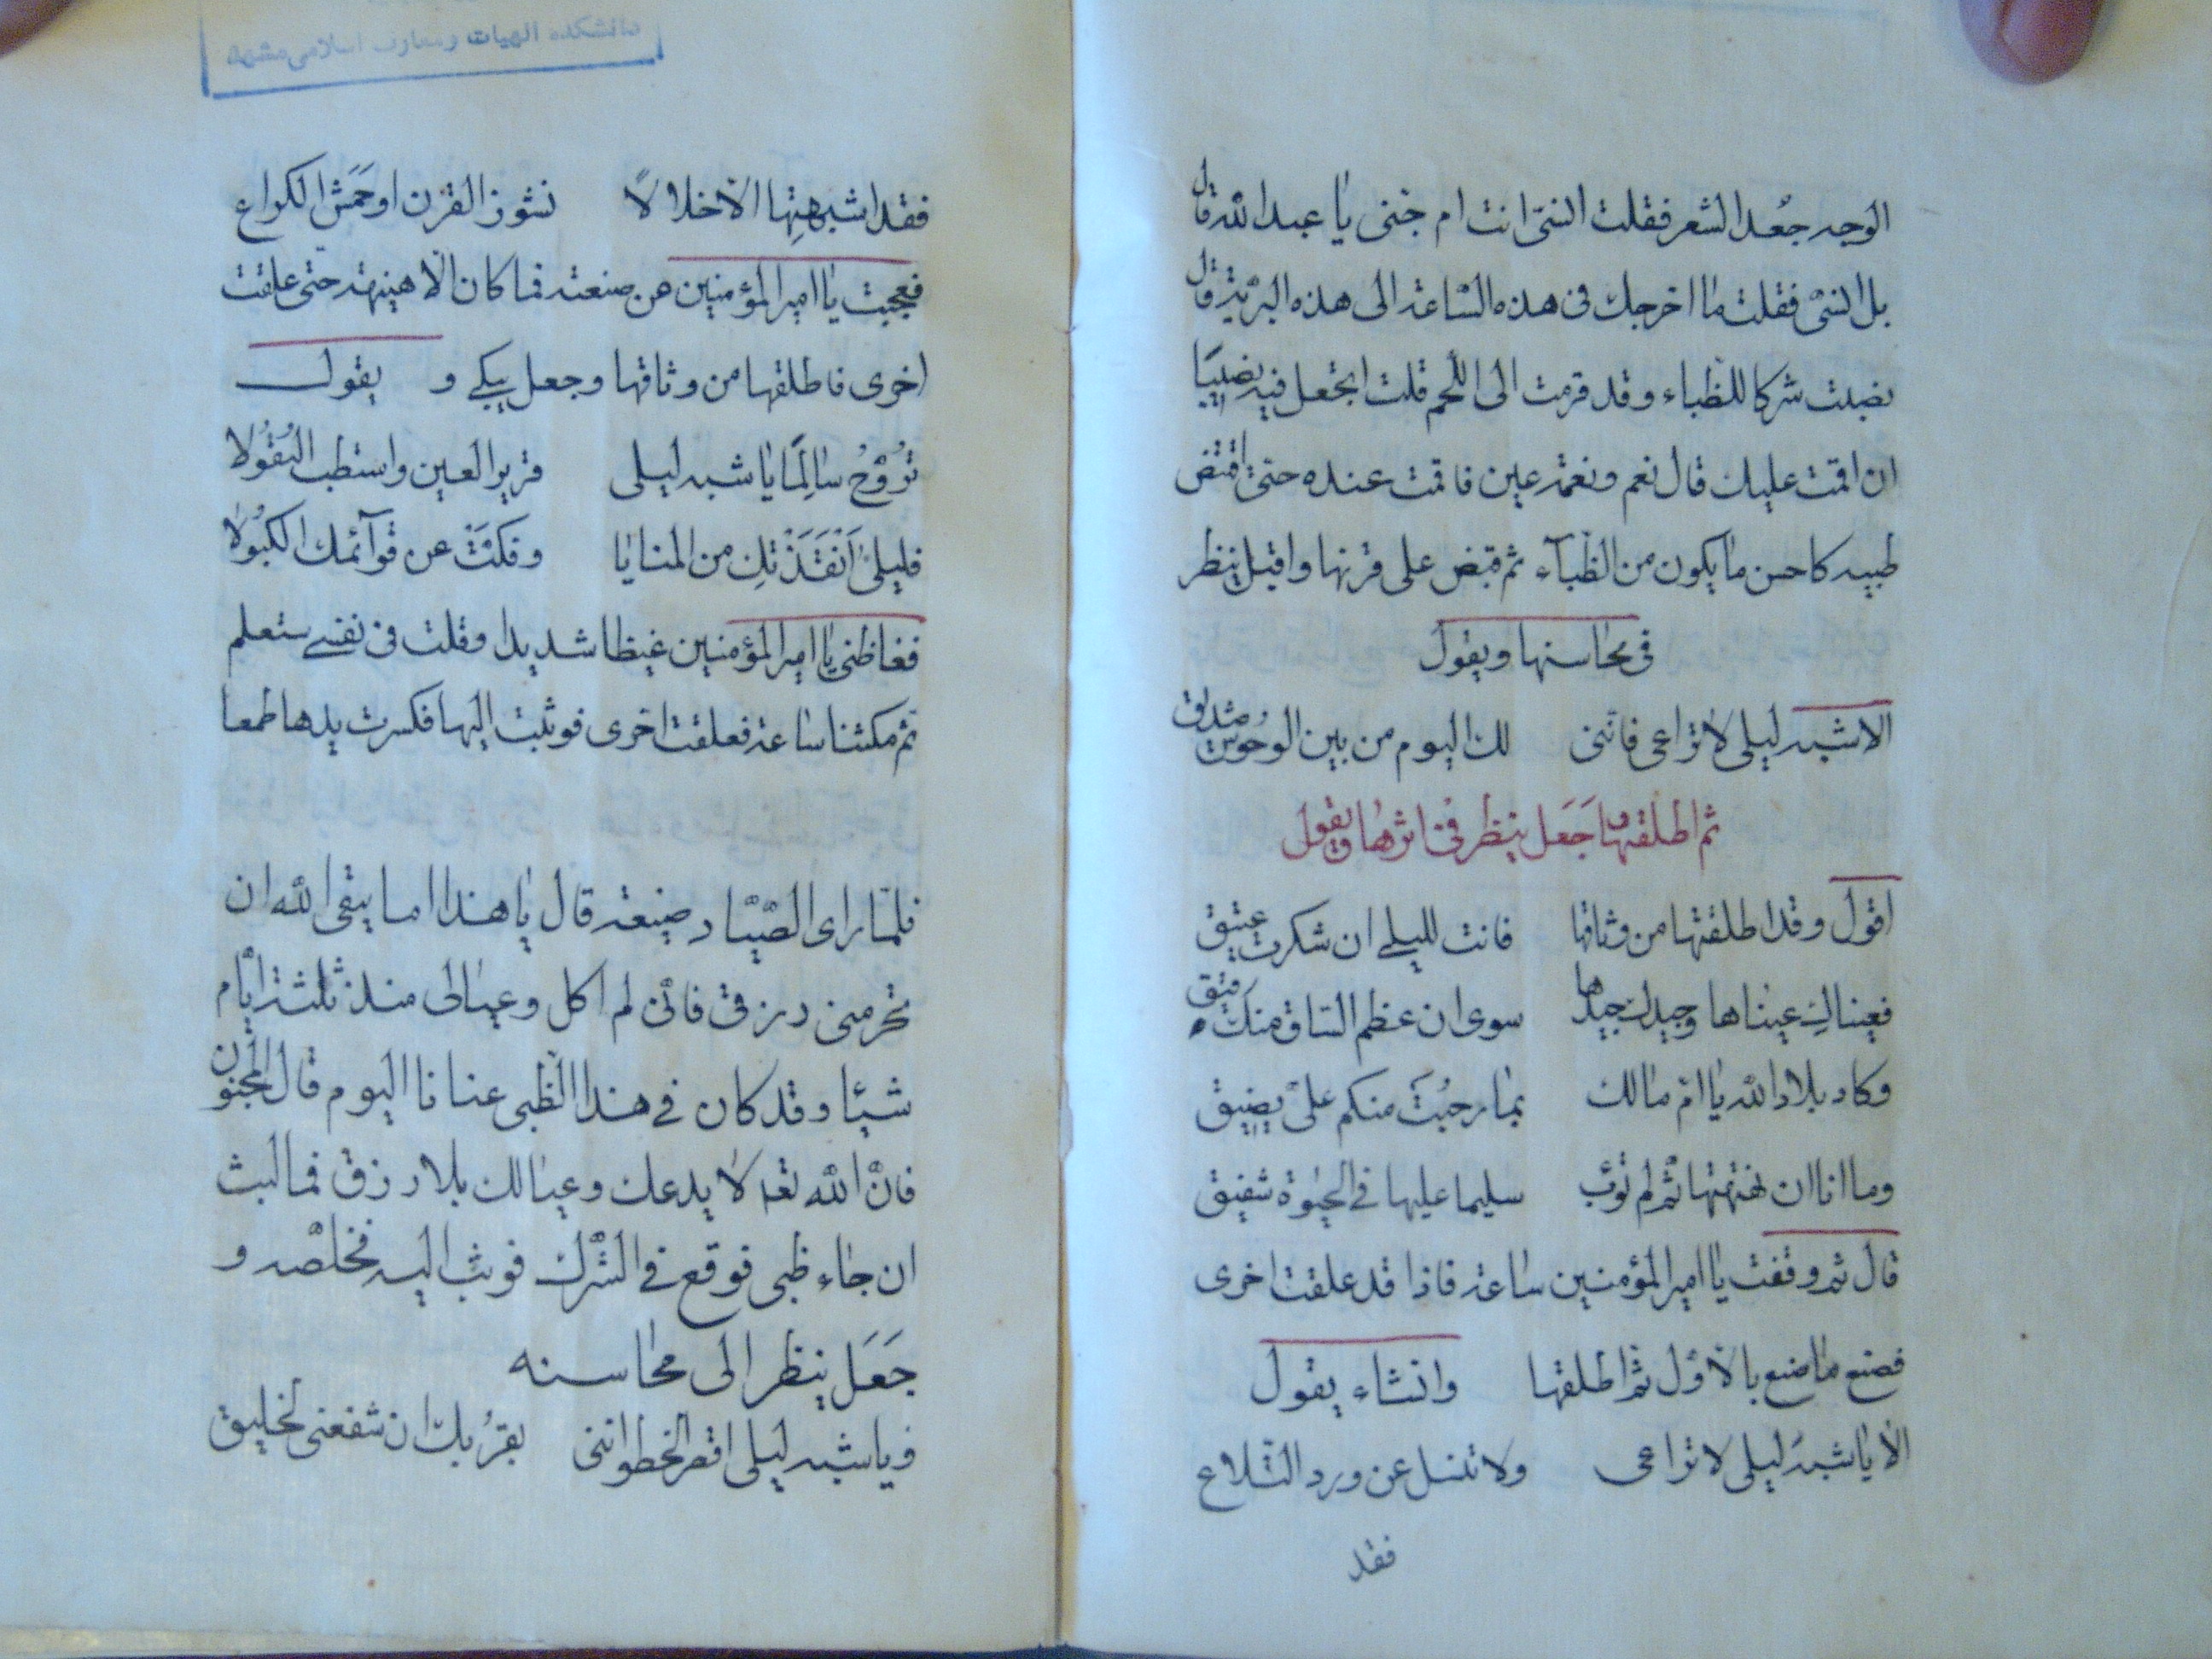 الوجه جعُد الشعر فقلت انسىّ انت ام جنى يا عبد الله قال
بل انسىّ فقلت ما اخرجك فى هذه السّاعة الى هذه البرّيّة قال
نصبت شركا للظباء وقد قرمت الى اللّحم قلت اتجعل فيه نصيبًا
ان اقمت عليك قال نعم ونعمة عين فاقمت عنده حتى اقتنض
ظبيه كاحسن ما يكون من الظّبآء ثم قبض على قرنها واقبل ينظر
فى محاسنها ويقول
الا شبه ليلى لا تراعى فاننى لك اليوم من بين الوحوش صديق
ثم اطلقها وجَعَل ينظر فى اثرها ويقول
اقول وقد اطلقتها من وثاقها فانت لليلى ان شكرت عتيق
فعيناكِ عيناها وجيدك جيدها سوى ان عظم السّاق منك دقيق
وكاد بلاد الله يا امّ مالك بما رحبُتَ منكم علىّ يضيق
وما انا ان تهمتها ثم لم تؤب سليما عليها فى الحيوة شفيق
قال ثم وقفت يا امير المؤمنين ساعة فاذا قد علقت اخرى
فصنع ما صنع بالاوّل ثم اطلقها وانشاء يقول
الا يا شبه ليلى لا تراعى ولا تنسل عن ورد التلاع
فقد
دانشكده الهيات ومعارف اسلامى مشهد
فقد اشبهتِها الا خلالًا نشوز القرن او حَمَش الكراع
فعجبت يا امير المؤمنين من صنعته فما كان الّا هنيهة حتى علقت
اخرى فاطلقها من وثاقها وجعل يبكى و يقول
تَرُوْحُ سالِمًا يا شبه ليلى قرير العين واستطب البُقُولا
فليلىٰ اَنْقَذَتْكِ من المنايا وفكّتْ عن قوآئمك الكبُولا
فغاظنى يا امير المؤمنين غيظا شديدا وقلت فى نفسى ستعلم
ثم مكثنا ساعة فعلقت اخرى فوثبت اليها فكسرت يدها طمعا
فلمّا راى الصّيّاد صنيعه قال يا هذا اما يتقى الله ان
تحرمنى رزقى فانّى لم اكل وعيالى منذ ثلثة ايّام
شيئا وقد كان فى هذا الظّبى عنانا اليوم قال المجنون
فانّ الله تعٰه لا يدعك وعيالك بلا رزق فما لبث
ان جاء ظبى فوقع فى الشّرك فوثب اليه فخلّصه و
جَعَل ينظر الى محاسنه
ويا شبه ليلى اقصر الخطو اننى بقربك ان شفعنى لخليق